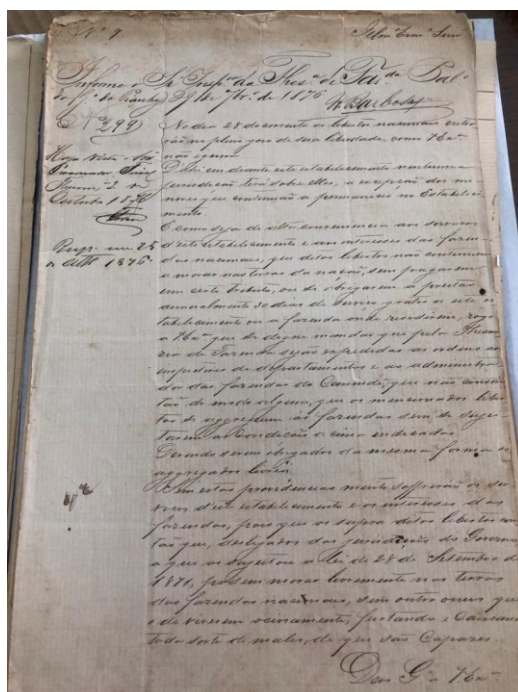 Nº 9
Illmº Exmº Senr
Informe o Sr. Inspor da Thesª de Fazdª Palº
do Gº do Piauhy 29 de 7brº de 1876
Nº 299
No dia 28 do corrente os libertos nacionaes entra
rão no pleno goso de sua liberdade, como V. Exª
não ignora.
D'ahi em diante este estabelecimento nenhuma
jurisdicção terá sobre elles, a excepção dos me
nores que continuão a permanecer no Estabeleci
mento.
E como seja de alta conveniencia aos serviços
d'este estabelecimento e aos interesses das fazen
das nacionaes, que ditos libertos não continuem
a morar nas terras da nação, sem pagarem
um certo tributo, ou se obrigarem a prestar
annualmente 30 dias de serviço gratis a este es
tabelecimento ou a fazenda onde residirem, rogo
a V. Exª que se digne mandar que pela Thesou
raria de Fazenda sejão expedidas as ordens aos
inspectores de departamentos e ao administra
dor das fazendas de Canindé, que não consin
tão de modo algum, que os mencionados liber
tos se aggreguem ás fazendas sem se sugei
tarem as condições a cima
Devendo serem obrigados da mesma forma os
aggregados livres.
Sem estas providencias muito soffrerão os ser
viços d'este estabelecimento e os interesses das
fazendas, pois que os supra ditos libertos en
tão que, desligados da jurisdicção do Governo
a que os sugeitou a Lei de 28 de Setembro de
1871, podem morar livremente nas terras
das fazendas nacionaes, sem outro onus que
o de viverem ociosamente, furtando e causando
toda sorte de males, de que são capazes.
Deos G.e a V. Exª
Haja Vista o Sr.
Procurador Fiscal
2 de
Outubro 1876
Resp. em 25
de 1876